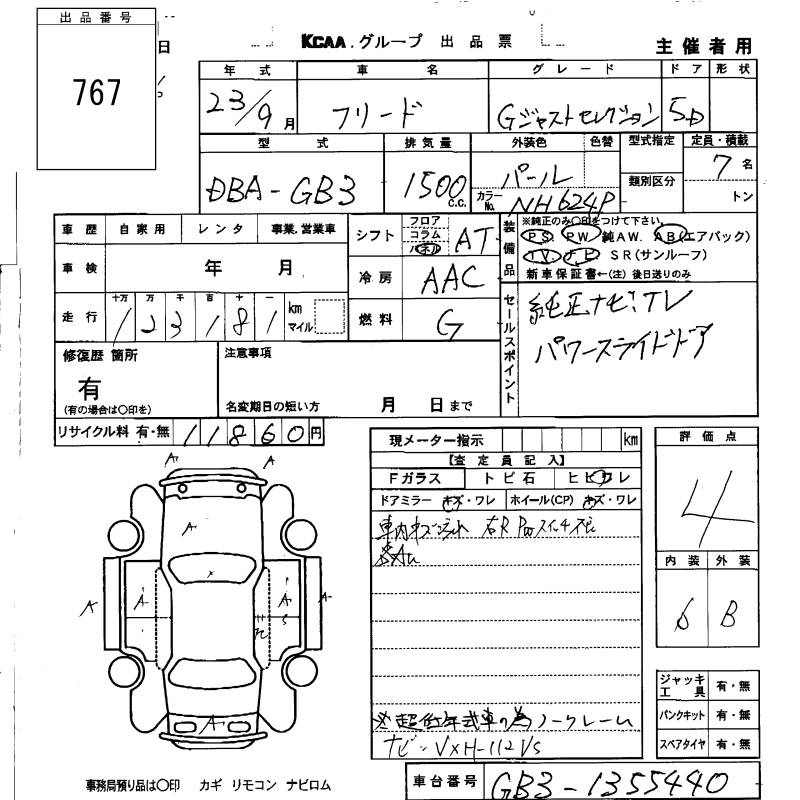 出品番号
767
日
KCAA.グループ 出品票
主催者用
年式 車名 グレード ドア 形状
23/9月 フリード Gジャストセレクション 5D
型式 排気量 外装色 色替 型式指定 定員・積載
DBA-GB3 1500 C.C. パール 7名
カラーNo. NH624P 類別区分 トン
車歴 自家用 レンタ 事業,営業車
シフト フロア コラム パネル AT
装備品 ※純正のみ〇印をつけて下さい。
PS PW 純AW. AB(エアバック)
TV ナビ SR(サンルーフ)
新車保証書←(注)後日送りのみ
車検 年 月
冷房 AAC
走行 十万 万 千 百 十 一
123181 km マイル
燃料 G
セールスポイント
純正ナビ.TV
パワースライドドア
修復歴 箇所
有
(有の場合は〇印を)
注意事項
名変期日の短い方 月 日まで
リサイクル料 有・無 11860円
現メーター指示 km
【査定員記入】
Fガラス トビ石 ヒビワレ
ドアミラー キズ・ワレ ホイール(CP) キズ・ワレ
車内キズ
※超低年式車の為ノークレーム
ナビ-VXH-112VS
評価点
4
内装 外装
B
ジャッキ工具 有・無
パンクキット 有・無
スペアタイヤ 有・無
A A
A
A A A A
A
事務局預り品は〇印 カギ リモコン ナビロム
車台番号 GB3-1355440